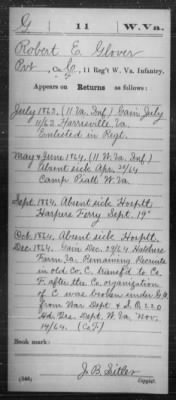 G 11 W. Va.
Robert E. Glover
Pvt, Co. G, 11 Reg't W. Va. Infantry.
Appears on Returns as follows:
July 1863, (11 Va. Inf) Gain July
11/63 Harrisville Va.
Enlisted in Regt.
May & June 1864. (11 W. Va. Inf.)
Absent sick Apr. 30/64
Camp Piatt W. Va.
Sept. 1864, Absent sick Hosptl.
Harpers Ferry Sept. 19"
Oct. 1864, Absent sick Hosptl.
Dec. 1864. Gain Dec. 29/64 Hatchers
Farm Va. Remaining Recruits
in old Co. C. transf'd to Co.
F. after the Co. organization
of C was broken under G.O.
from War Dept. & S.O. 220
Hd. Qrs. Dept. W. Va. Nov.
14/64. (Co. F)
Book mark:
(546)
J. B. Sitler
Copyist.